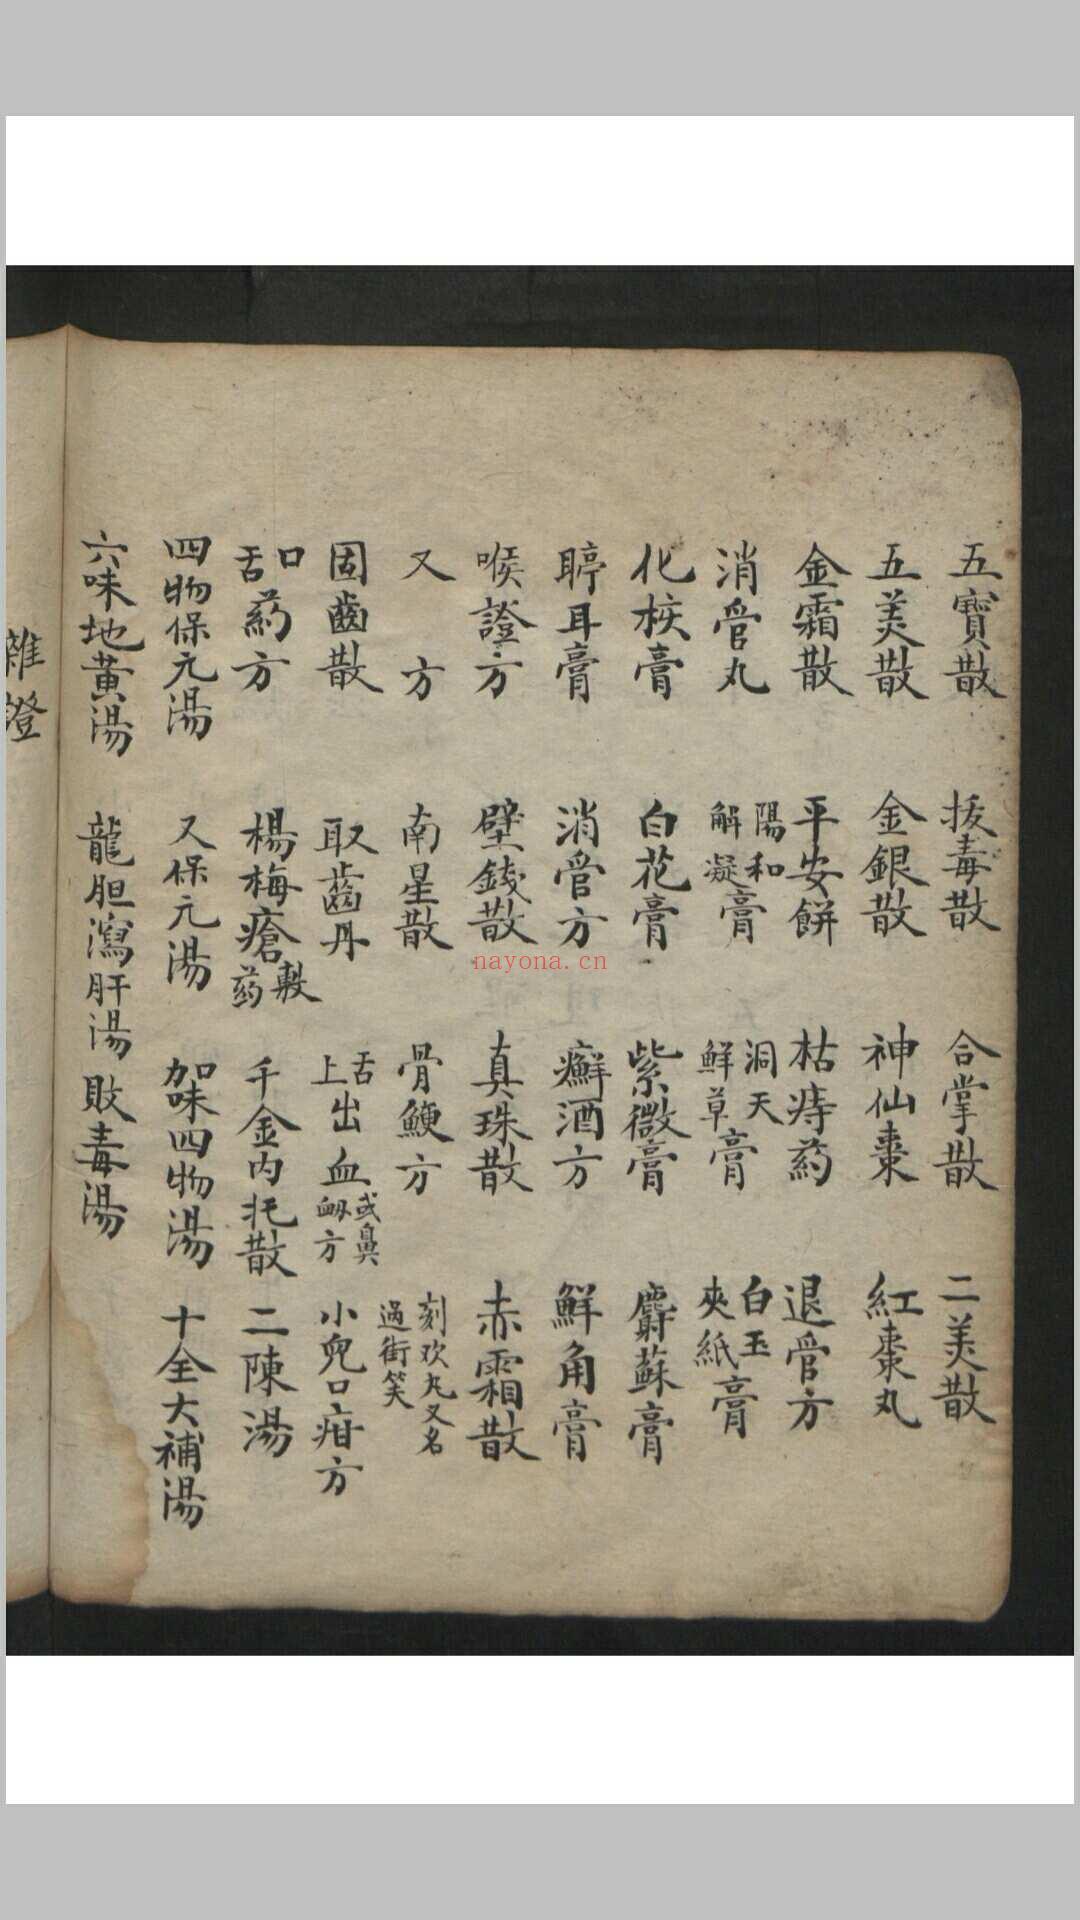 五寳散　拔毒散　合掌散　二美散
五美散　金銀散　神仙棗　紅棗丸
金霜散　平安餅　枯痔药　退管方
消管丸　陽和解凝膏　洞天鮮草膏　白玉夾紙膏
化核膏　白花膏　紫微膏　麝蘇膏
聤耳膏　消管方　癬酒方　鮮角膏
喉證方　壁錢散　真珠散　赤霜散
又方　南星散　骨鯁方　刻欢丸又名過街笑
固齒散　取齒丹　舌上出血或鼻衂方　小兒口疳方
口舌药方　楊梅瘡敷药　千金内托散　二陳湯
四物保元湯　又保元湯　加味四物湯　十全大補湯
六味地黄湯　龍胆瀉肝湯　敗毒湯
雜證
nayona.cn